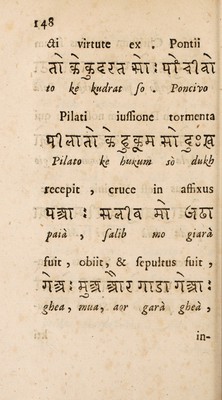 148
cti virtute ex . Pontii
तो के कुदरत सो : पोंदीवो
to ke kudrat so . Poncivo
Pilati iussione tormenta
पीलातो के हुकूम सो दुःख
Pilato ke hukum sò dukh
recepit , cruce in affixus
पआ : सलीब मो जडा
paià , salib mo giarà
fuit , obiit, & sepultus fuit ,
गेआ : मुआ और गाडा गेआ :
ghea , mua, aor garà gheà ,
in-